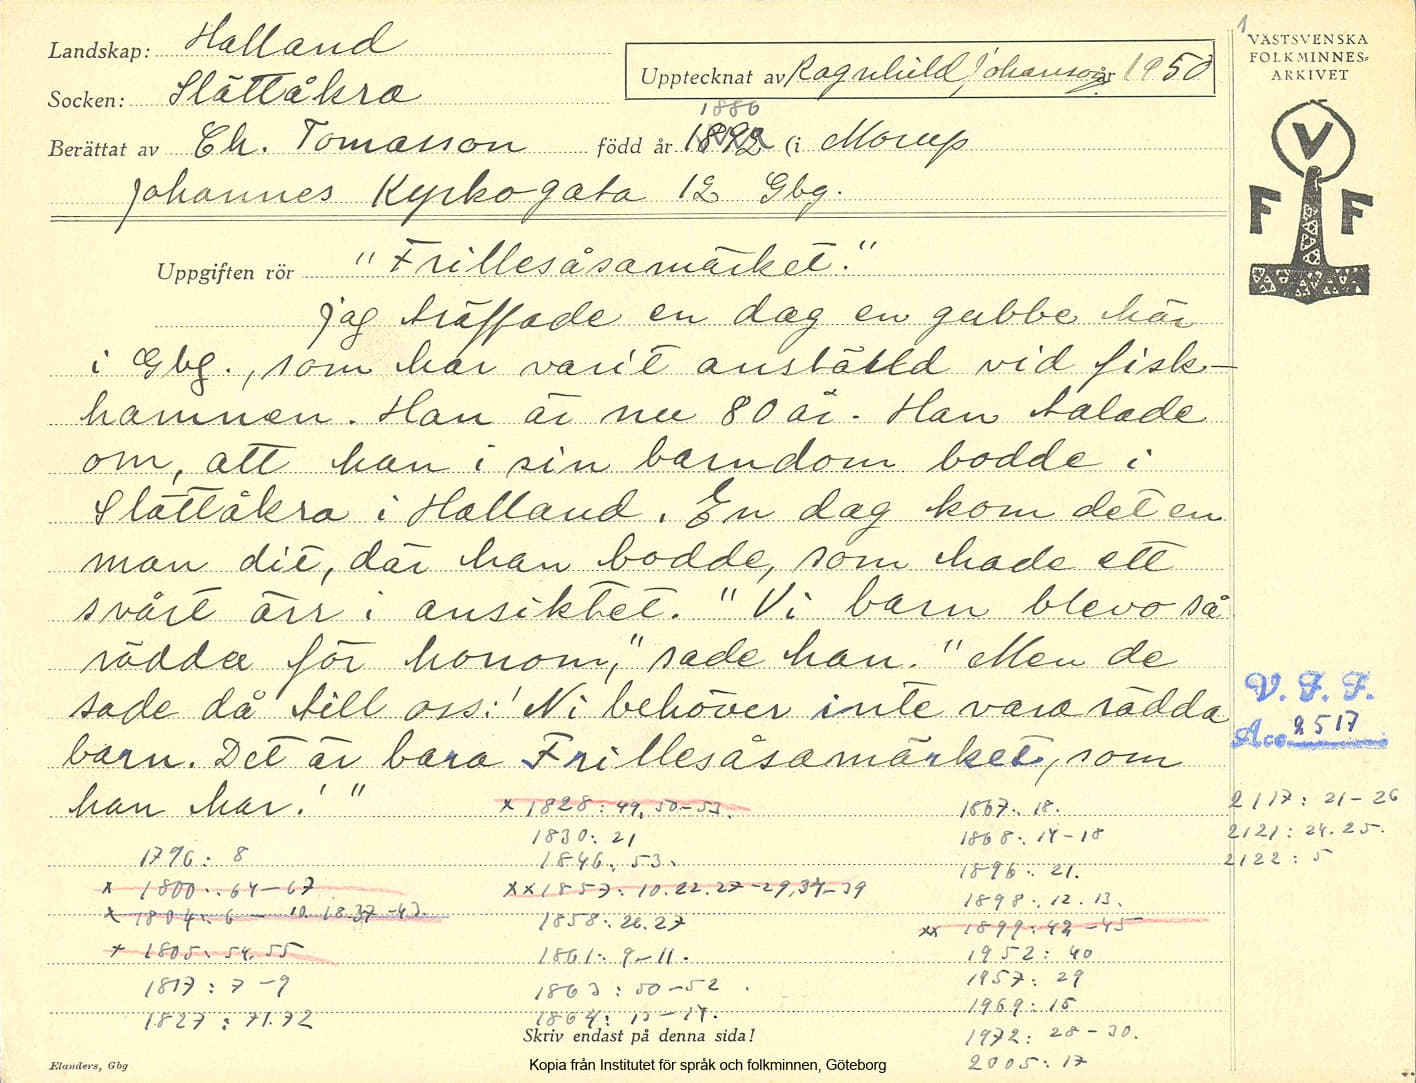 1
VÄSTSVENSKA
FOLKMINNES-
ARKIVET
V
F F
Landskap: Halland
Socken: Slättåkra
Upptecknat av Ragnhild Johansson år 1950
1886
Berättat av Ch. Tomasson född år 1892 (i Morup
Johannes Kyrkogata 12 Gbg.
Uppgiften rör "Frillesåsamärket."
Jag träffade en dag en gubbe här
i Gbg., som har varit anställd vid fisk-
hamnen. Han är nu 80 år. Han talade
om, att han i sin barndom bodde i
Slättåkra i Halland. En dag kom det en
man dit, där han bodde, som hade ett
svårt ärr i ansiktet. "Vi barn blevo så
rädda för honom," sade han. "Men de
sade då till oss: 'Ni behöver inte vara rädda
barn. Det är bara Frillesåsamärket, som
han har.' "
V. F. F.
Acc. 2517
1796: 8
x 1800: 64-67
x 1804: 6 - 10. 18. 37-43.
x 1805: 54. 55
1817: 7-9
1827: 71.72
x 1828: 49. 50-53.
1830: 21
1846: 53.
xx 1857: 10. 22. 27-29, 34-39
1858: 26. 27
1861: 9-11.
1863: 50-52.
1864: 13-14.
1867: 18.
1868: 14-18
1896: 21.
1898: 12. 13.
xx 1899: 42-45
1952: 40
1957: 29
1969: 15
1972: 28-30.
2005: 17
2117: 21-26
2121: 24. 25.
2122: 5
Skriv endast på denna sida!
Elanders, Gbg
Kopia från Institutet för språk och folkminnen, Göteborg